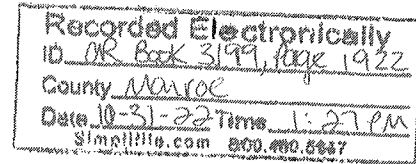 Recorded Electronically
ID OR Book 3199, Page 1922
County Monroe
Date 10-31-22 Time 1:27 PM
Simplifile.com 800.460.5657